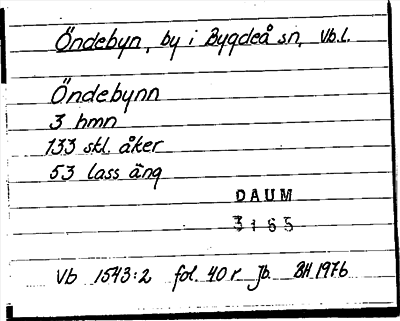 Öndebyn, by i Bygdeå sn, Vb.l.
Öndebynn
3 hmn
133 skl. åker
53 lass äng
DAUM
3165
Vb 1543:2 fol. 40 r Jb. BH 1976